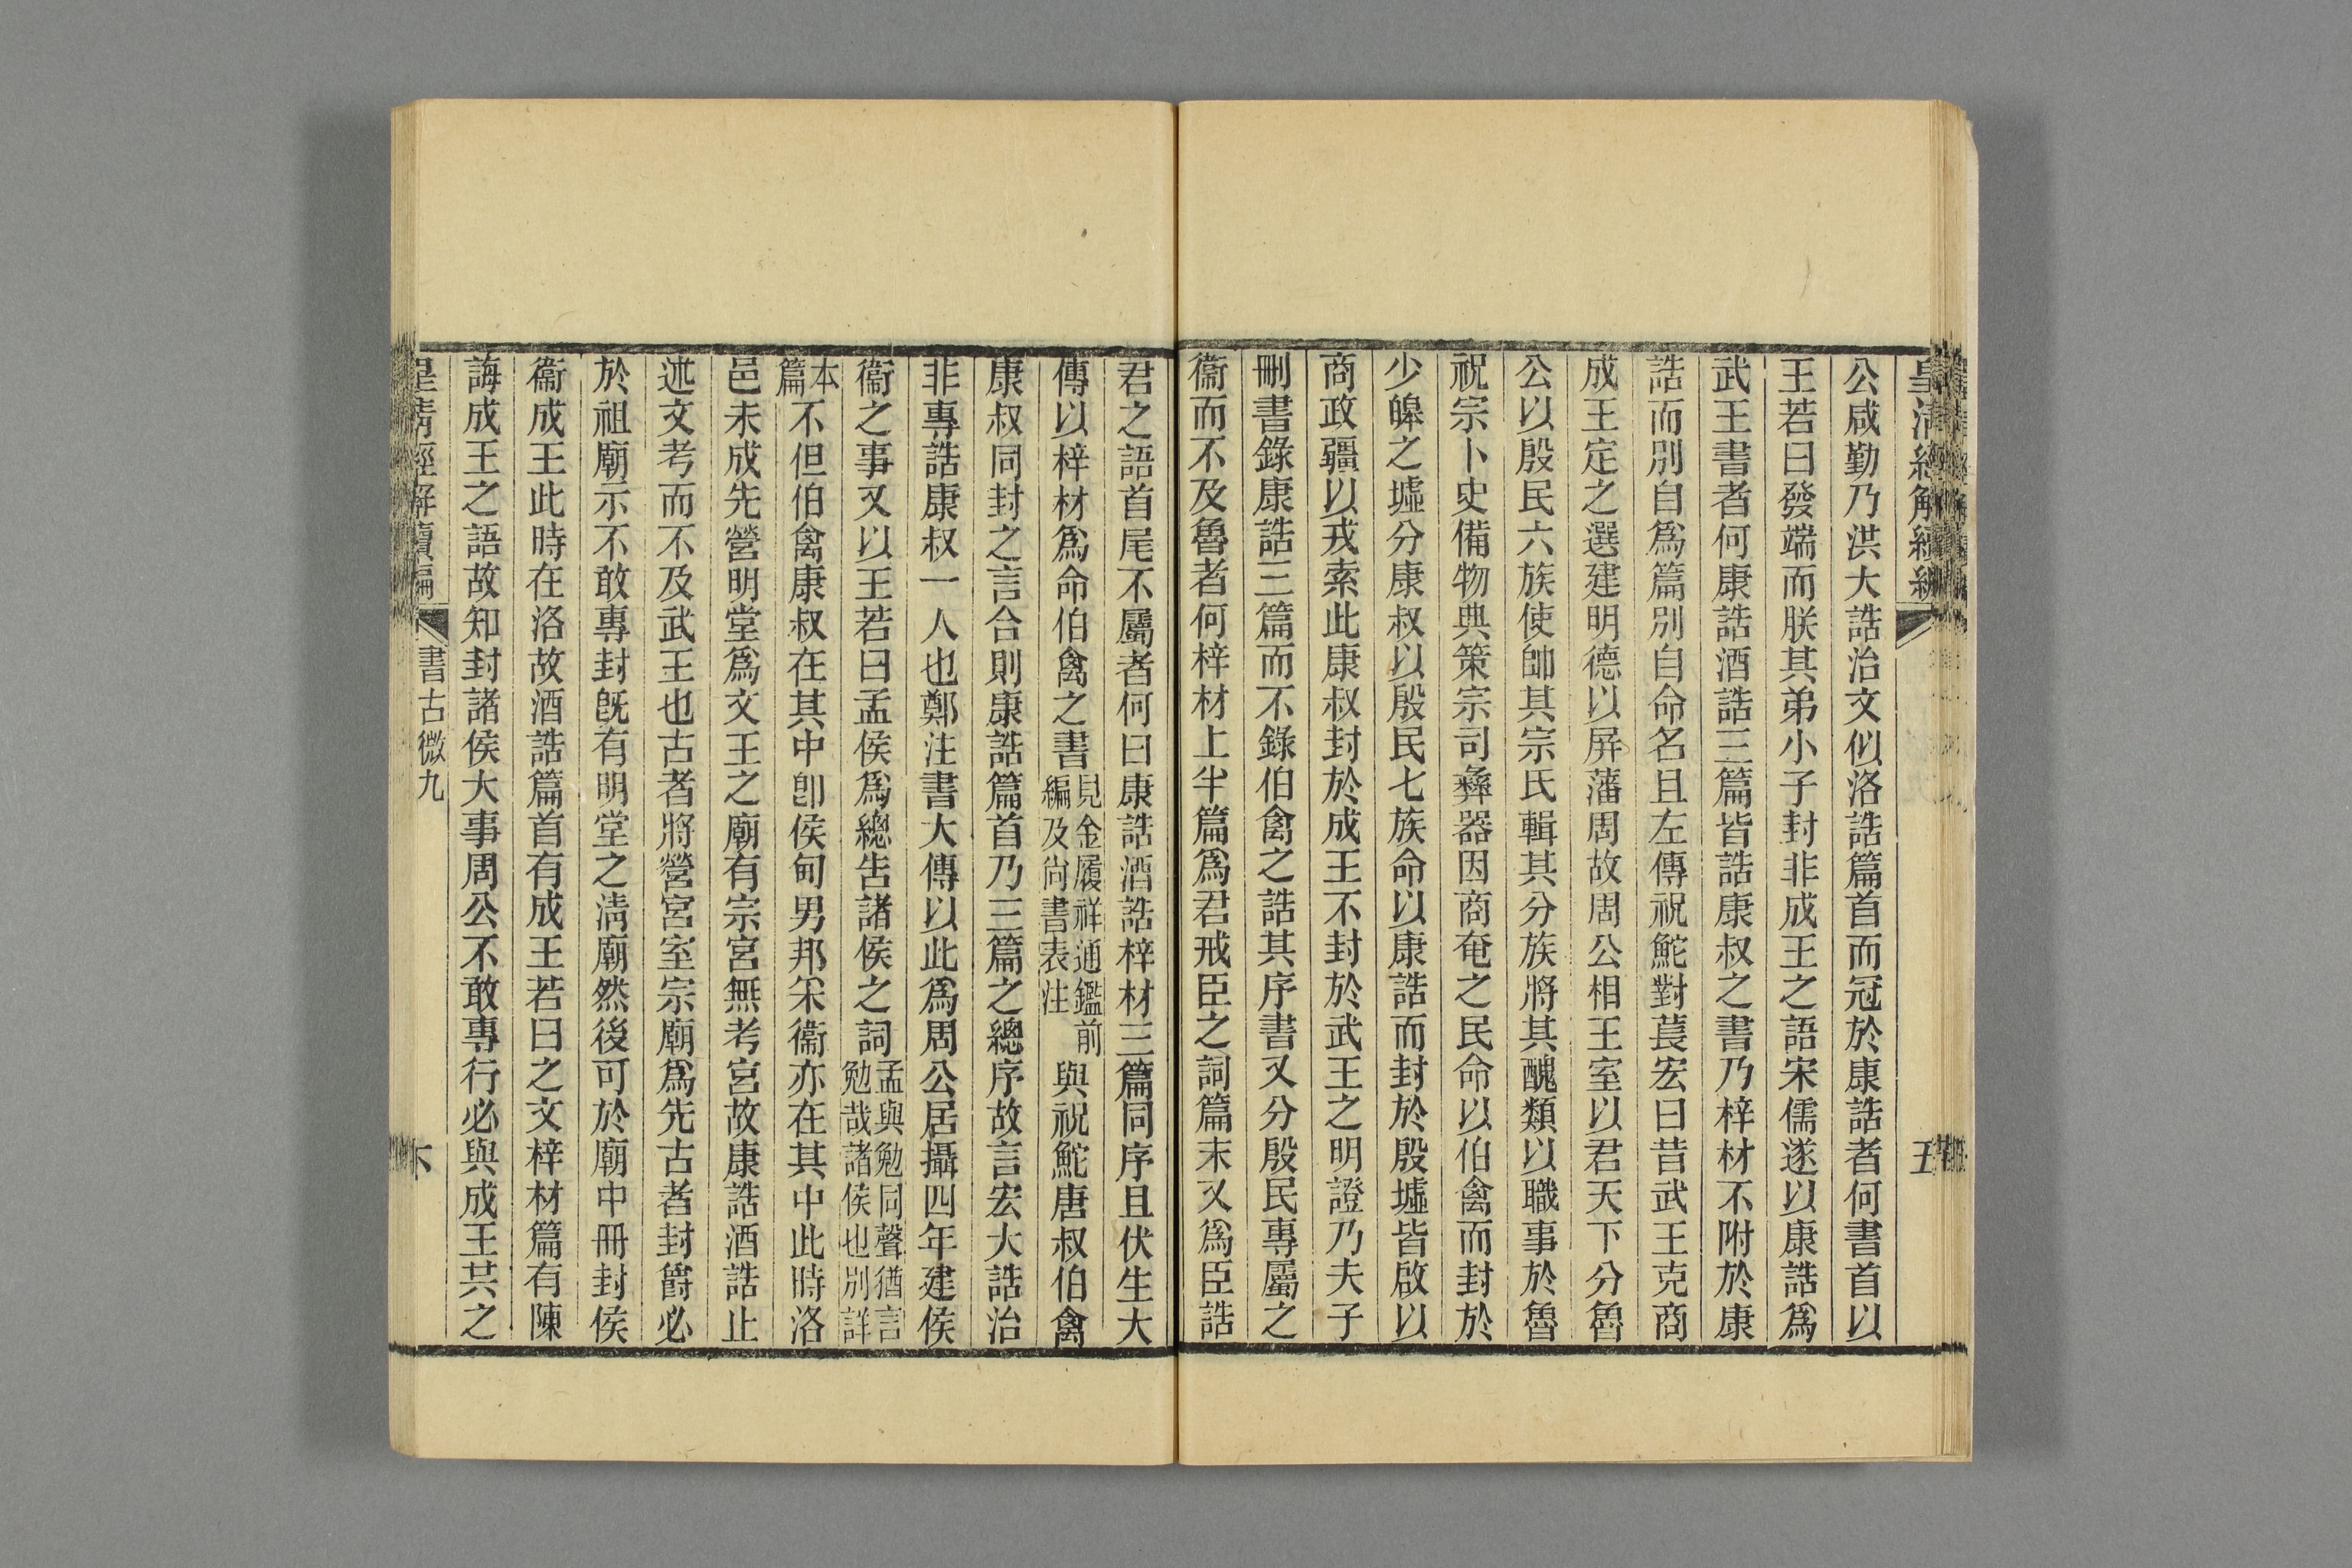 皇清經解續編
五
公咸勤乃洪大誥治文似洛誥篇首而冠於康誥者何書首以
王若曰發端而朕其弟小子封非成王之語宋儒遂以康誥爲
武王書者何康誥酒誥三篇皆誥康叔之書乃梓材不附於康
誥而別自爲篇別自命名且左傳祝鮀對萇宏曰昔武王克商
成王定之選建明德以屏藩周故周公相王室以君天下分魯
公以殷民六族使帥其宗氏輯其分族將其醜類以職事於魯
祝宗卜史備物典策宗司彝器因商奄之民命以伯禽而封於
少皞之墟分康叔以殷民七族命以康誥而封於殷墟皆啟以
商政疆以戎索此康叔封於成王不封於武王之明證乃夫子
刪書錄康誥三篇而不錄伯禽之誥其序書又分殷民專屬之
衞而不及魯者何梓材上半篇爲君戒臣之詞篇末又爲臣誥
君之語首尾不屬者何曰康誥酒誥梓材三篇同序且伏生大
傳以梓材爲命伯禽之書見金履祥通鑑前編及尙書表注與祝鮀唐叔伯禽
康叔同封之言合則康誥篇首乃三篇之總序故言宏大誥治
非專誥康叔一人也鄭注書大傳以此爲周公居攝四年建侯
衞之事又以王若曰孟侯爲總告諸侯之詞孟與勉同聲猶言勉哉諸侯也別詳
本篇不但伯禽康叔在其中卽侯甸男邦采衞亦在其中此時洛
邑未成先營明堂爲文王之廟有宗宮無考宮故康誥酒誥止
述文考而不及武王也古者將營宮室宗廟爲先古者封爵必
於祖廟示不敢專封旣有明堂之淸廟然後可於廟中冊封侯
衞成王此時在洛故酒誥篇首有成王若曰之文梓材篇有陳
誨成王之語故知封諸侯大事周公不敢專行必與成王共之
皇清經解續編
書古微九
六